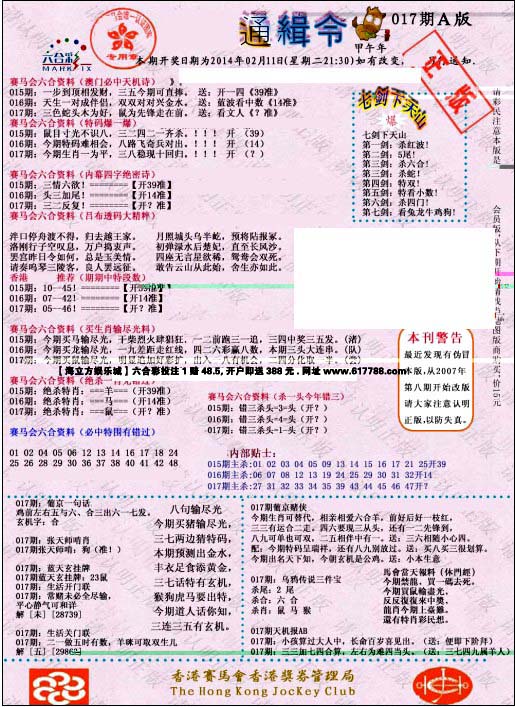 通緝令
017期A版
甲午年
六合彩
MARK SIX
专用章
正版
本期开奖日期为2014年02月11日(星期二21:30)如有改变，
赛马会六合资料（澳门必中天机诗）
015期：一步到顶相发财，三五今期可直捧， 送：开一四《39准》
016期：天生一对成伴侣，双双对对兴金水， 送：蓝波看中数《14准》
017期：三色蛇头木为好，鼠为先锋走在前， 送：看文人《？准》
赛马会六合资料（特码爆一爆）
015期：鼠目寸光不识八，三二四二一齐杀，！！！ 开 （39）
016期：今期特码难相会，八路飞奇兵对出，！！！ 开 （14）
017期：今期生肖一为平，三八稳现十回归，！！！ 开 （？）
赛马会六合资料（内幕四字绝密诗）
015期：三情六欲！========【开39准】
016期：头三加尾！========【开14准】
017期：三二反复！========【开？准】
赛马会六合资料（吕布透码大精粹）
洋口停舟渡不得，归去越王家， 月照城头乌半屹，预将陆报冢。
洛刚行子空叹息，万户捣衷声。 初弹渌水后楚妃，直至长风沙。
罢宫昨日今如何，总是玉美情。 四座无言星欲稀，鸳鸯会双死。
请奏鸣琴三陵洛，良人罢远征。 敢告云山从此始，舍生亦如此。
香港 推荐（期期中特段数）
015期：10--45！========【开39准】
016期：07--42！========【开14准】
017期：05--46！========【开？准】
赛马会六合资料（买生肖输尽光料）
015期：今期买马输尽光，干柴烈火肆猖狂，一二前跑三一追，三四中奖三五发。(渚)
016期：今期买龙输尽光，一九差距走红线，四二六彩赢八数，本期三头大连串。(队)
【海立方娱乐城】六合彩投注 1 赔 48.5, 开户即送 388 元．网址 www.617788.com
015期：绝杀特肖：===羊===（开39准）
016期：绝杀特肖：===马===（开14准）
017期：绝杀特肖：===鼠===（开？准）
赛马会六合资料（必中特围有错过）
01 02 03 04 05 09 10 12 13 14 16 17 18 24
25 26 28 29 30 31 36 37 38 40 41 42 48
赛马会六合资料（杀一头今年错三）
015期：错三杀头-3-头（开？）
016期：错三杀头-4-头（开？）
017期：错三杀头-1-头（开？）
内部贴士：
015期主杀:01 02 03 04 05 09 13 14 15 16 17 21 25开39
016期主杀:06 07 08 12 13 19 24 25 29 30 31 32 开14
017期主杀:27 31 32 33 34 35 39 43 44 45 46 47开？
七剑下天山
爆
七剑下天山
第一剑：杀红波！
第二剑：5尾！
第三剑：杀六合！
第三剑：杀蛇！
第四剑：特双！
第五剑：特看小数！
第六剑：杀四门！
第七剑：看兔龙牛鸡狗！
本刊警告
最近发现有伪冒
本版，从2007年
第八期开始改版
请大家注意认明
正版，以防失真。
017期：葡京一句话
鸡前左右五与六、合三出六一七发。
玄机字：合
017期：张天师啃肖
张天师啃啃：狗（准！）
017期：蓝天玄挂牌
017期蓝天玄挂牌：23鼠
017期：生活开门联
017期：常赌未必全尽输，
平心静气可和洋
解［未］［28739］
017期：生活关门联
017期：二一做五时有数，羊咪可取双生儿
解［五］［29862］
八句输尽光
今期买猪输尽光，
三七两边猜特码，
本期预测出金水，
丰衣足食添黄金，
三七活特有玄机，
猴狗虎马要出特，
今期道人话你知，
三连三五有玄机。
017期葡京赌侠
今期生肖可替代，相亲相爱六合羊，前好后好一枝红，
三三有运合二走。四六要现三从头，还有一二先锋到，
八九可单也可双，二五相伴中有一。送：三六相随小心四。
配：今期特码呈瑞祥，还有八九别放过。送：买八买三很划算。
今期出名天下知，今朝玄机是合会。送：小本生意
017期：乌鸦传说三件宝
杀尾：2 尾
杀合：六 合
杀肖：鼠 马 猴
馬會常天報料（休門經）
今期禁龍，買一碼去死，
今期買鼠輸盡光，
反反復復來中獎，
龍肖今期上臺難。
還有特肖彩民想。
017期天机报AB
017期：小孩算过大人中，长命百岁喜见出。（送：便即下阶拜）
017期：三三加七四合算，左右为难四当头。（送：三七四九属羊人）
香港賽馬會香港獎券管理局
The Hong Kong JocKey Club